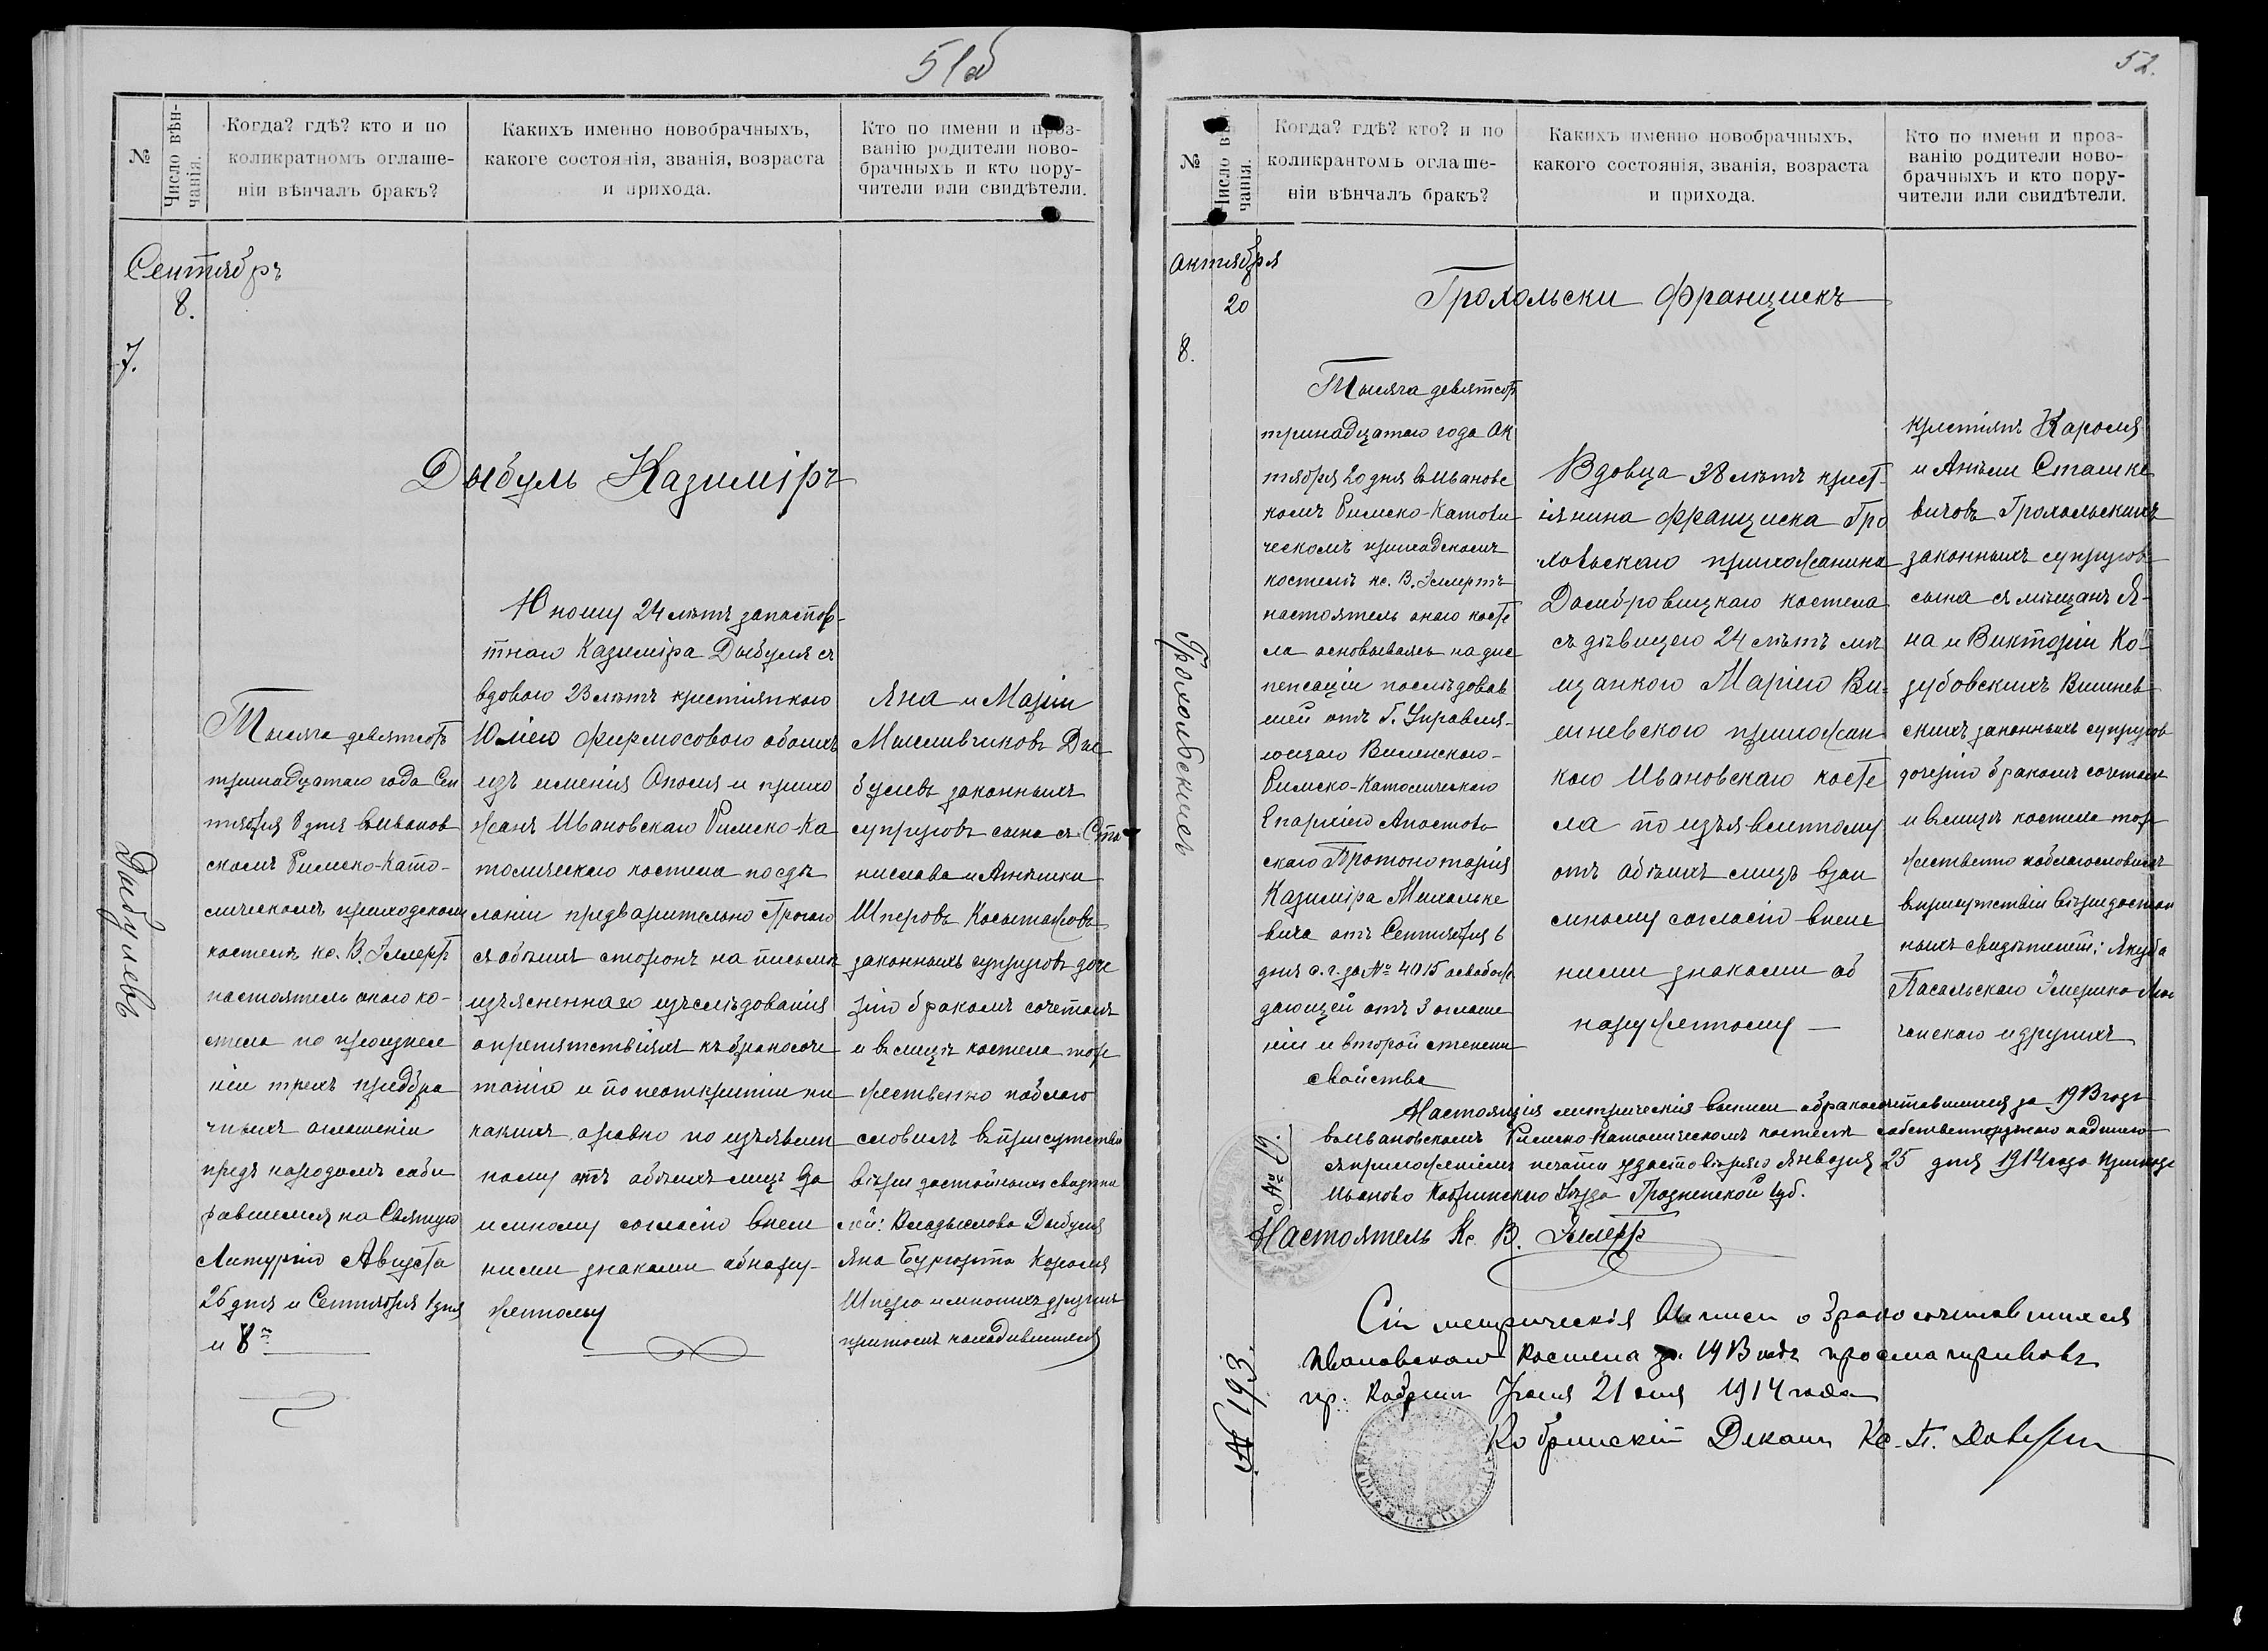 51об
№
Число вѣн-
чанія.
Когда? гдѣ? кто и по
коликратномъ оглаше-
ніи вѣнчалъ бракъ?
Какихъ именно новобрачныхъ,
какоге состоянія, званія, возраста
и прихода.
Кто по имени и проз-
ванію родители ново-
брачныхъ и кто пору-
чители или свидѣтели.
Сентябръ
8.
7.
Дыбулевъ
Дыбуль Казиміръ
Тысяча девятсотъ
тринадцатаго года Сен
тября 8 дня въ Иванов
скомъ Римско-Като-
лическомъ приходскомъ
костелѣ кс. В. Эллертъ
настоятель онаго ко-
стела по произнесе
ніи трехъ предбра
чныхъ оглашеніи
предъ народомъ соби
равшемся на Святую
Литургію Августа
25 дня и Сентября 1 дня
и 8го
Юношу 24 лѣтъ
Казиміра Дыбуля съ
вдовою 23 лѣтъ крестіянкою
Юлією Фирмосовою обоихъ
изъ именія Ополя и прихо
жанъ Ивановскаго Римско-Ка
толическаго костела по сдѣ
ланіи предварительно строго
съ обѣихъ сторонъ на письмѣ
изъясненнаго изслѣдованія
о препятствіяхъ къ бракосоче
танію и по неоткрытіи ни
какихъ, а равно по изъявлен
ному отъ обѣихъ лицъ вза
имному согласію внеш
ними знаками обнару-
женному
Яна и Маріи
Мысливчиковъ Ды
булевъ законныхъ
супруговъ сына съ Ста
нислава и Антонины
Шперовъ
законныхъ супруговъ доче
рію бракомъ сочеталъ
и въ лицѣ костела тор
жественно поблаго
словилъ въ присутствіи
вѣры достойныхъ свидѣте
лей: Владыслава Дыбуля
Яна Караля
Шпера и многихъ другихъ
притомъ находившихся
52.
№
Число вѣн
чанія.
Когда? гдѣ? кто? и по
коликрантомъ оглаше-
ніи вѣнчалъ бракъ?
Какихъ именно новобрачныхъ,
какого состоянія, званія, возраста
и прихода.
Кто по имени и проз-
ванію родители ново-
брачныхъ и кто пору-
чители или свидѣтели.
Октября
20
8.
Грохольскихъ
Грохольски Францискъ
Тысяча девятсотъ
тринадцатаго года Ок
тября 20 дня въ Ивановс
комъ Римско-Католи
ческомъ приходскомъ
костелѣ кс. В. Эллертъ
настоятель онаго косте
ла основываясь на дис
пенсаціи послѣдовав
шей отъ Г. Управля-
ющаго Виленскаго-
Римско-Католическаго
Епархіею Апостоль
скаго Протонотарія
Казиміра Михальке
вича отъ Сентября 6
дня с. г. за № 4015 освобож
дающей отъ 3 оглаше
ніи и второй степени
свойства
Вдовца 38 лѣтъ крест-
іянина Франциска Гро
хольскаго прихожанина
Домбровицкаго костела
съ дѣвицею 24 лѣтъ мѣ
щанкою Марією Ви-
шневскою прихожан
кою Ивановскаго косте
ла по изъявленному
отъ обѣихъ лицъ взаи
мному согласію внеш
ними знаками об
наруженному —
крестіянъ Кароля
и Анели Сташке
вичовъ Грохольскихъ
законныхъ супруговъ
сына съ мѣщанъ Я-
на и Викторіи Ко-
зубовскихъ Вишнев-
скихъ законныхъ супруговъ
дочерію бракомъ сочеталъ
и въ лицѣ костела тор
жественно поблагословилъ
въ присутствіи вѣры достой
ныхъ свидѣтелей: Якуба
и другихъ
Настоящія метрическія выписи о бракосочетавшихся за 1913 годъ
въ Ивановскомъ Римско Католическомъ костелѣ собственноручною подписью
съ приложеніемъ печати удостовѣряю Января 25 дня 1914 года
Иваново Кобринскаго Уѣзда Гродненской губ.
№ 19.
Настоятель Кс. В. Эллертъ
Сіи метрическія выписи о бракосочетавшихся
Ивановскаго Костела за 1913 годъ просматривовъ
гр. Кобринъ 21 дня 1914 года
№ 193.
Кобринскій Деканъ Кс. П.